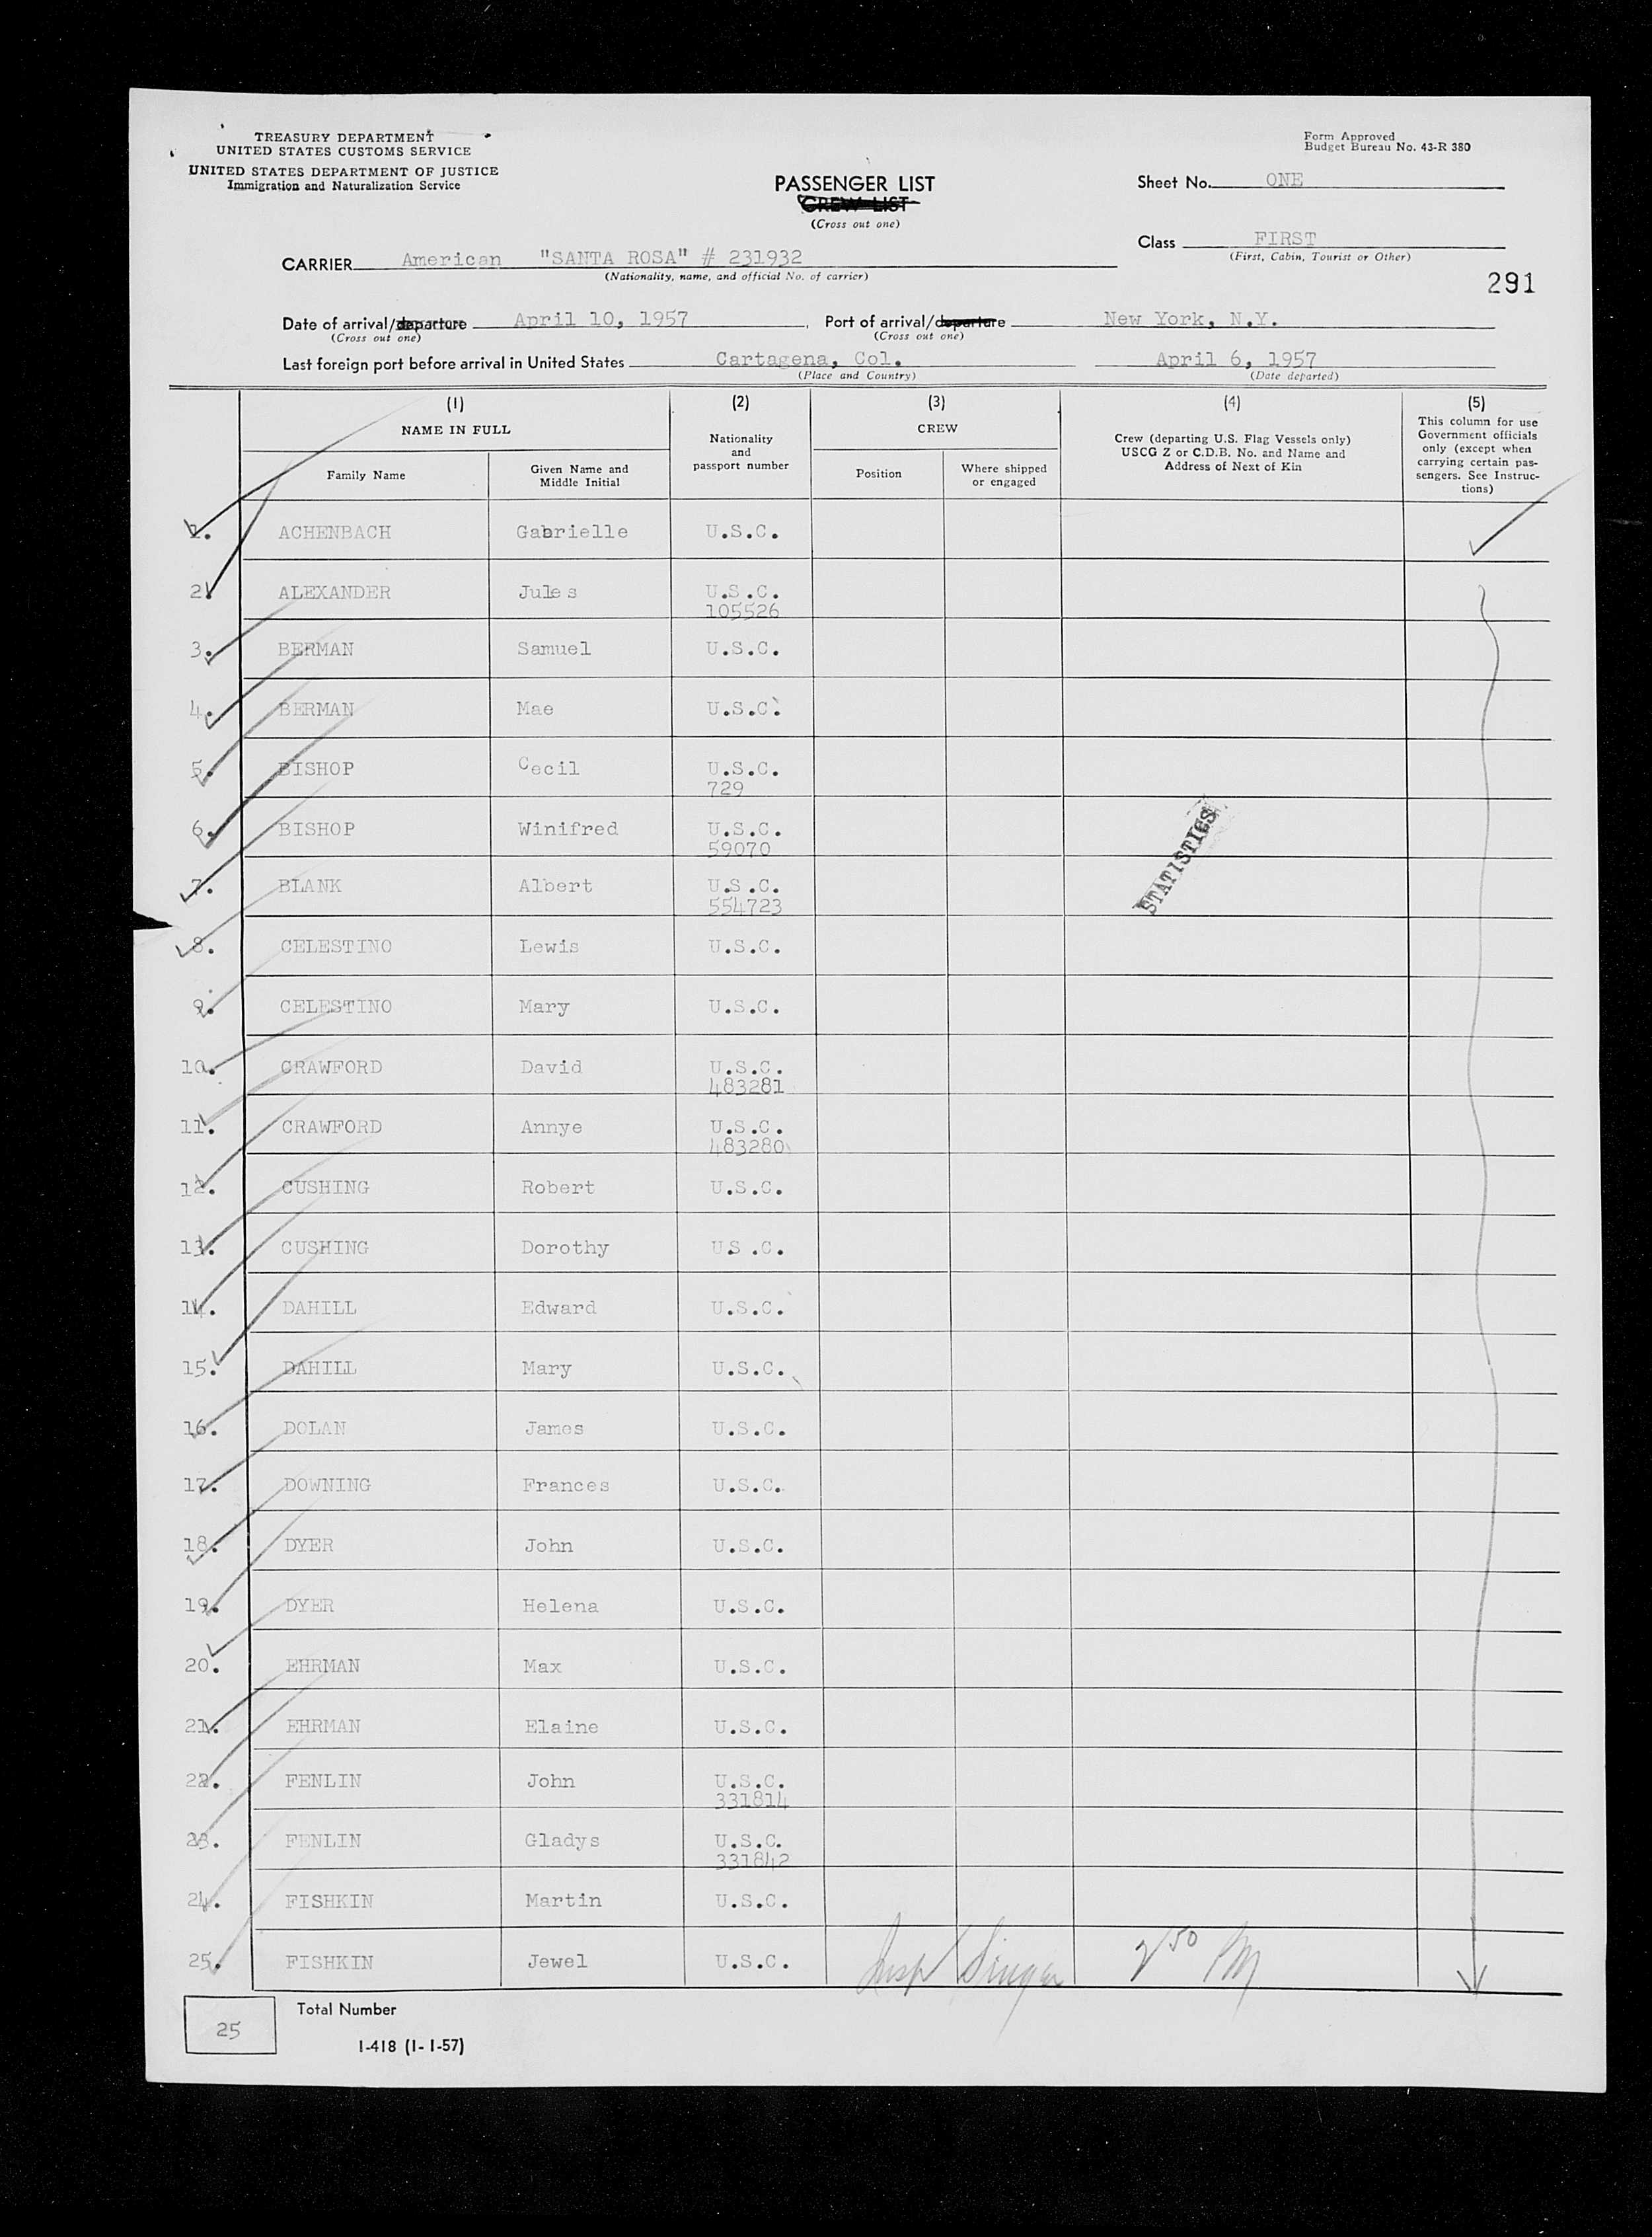 TREASURY DEPARTMENT
UNITED STATES CUSTOMS SERVICE
UNITED STATES DEPARTMENT OF JUSTICE
Immigration and Naturalization Service
Form Approved
Budget Bureau No. 43-R 380
PASSENGER LIST
CREW LIST
(Cross out one)
Sheet No. ONE
Class FIRST
(First, Cabin, Tourist or Other)
CARRIER American "SANTA ROSA" # 231932
(Nationality, name, and official No. of carrier)
291
Date of arrival/departure April 10, 1957, Port of arrival/departure New York, N.Y.
(Cross out one) (Cross out one)
Last foreign port before arrival in United States Cartagena, Col. April 6, 1957
(Place and Country) (Date departed)
(1) (2) (3) (4) (5)
NAME IN FULL
Family Name
Given Name and Middle Initial
Nationality and passport number
CREW
Position
Where shipped or engaged
Crew (departing U.S. Flag Vessels only)
USCG Z or C.D.B. No. and Name and
Address of Next of Kin
This column for use
Government officials
only (except when
carrying certain pas-
sengers. See Instruc-
tions)
1. ACHENBACH Gabrielle U.S.C.
2. ALEXANDER Jules U.S.C.
105526
3. BERMAN Samuel U.S.C.
4. BERMAN Mae U.S.C.
5. BISHOP Cecil U.S.C.
729
6. BISHOP Winifred U.S.C.
59070
STATISTICS
7. BLANK Albert U.S.C.
554723
8. CELESTINO Lewis U.S.C.
9. CELESTINO Mary U.S.C.
10. CRAWFORD David U.S.C.
483281
11. CRAWFORD Annye U.S.C.
483280
12. CUSHING Robert U.S.C.
13. CUSHING Dorothy US .C.
14. DAHILL Edward U.S.C.
15. DAHILL Mary U.S.C.
16. DOLAN James U.S.C.
17. DOWNING Frances U.S.C.
18. DYER John U.S.C.
19. DYER Helena U.S.C.
20. EHRMAN Max U.S.C.
21. EHRMAN Elaine U.S.C.
22. FENLIN John U.S.C.
331814
23. FENLIN Gladys U.S.C.
331842
24. FISHKIN Martin U.S.C.
25. FISHKIN Jewel U.S.C. Insp Singer 2 50 PM
25 Total Number
I-418 (1-1-57)